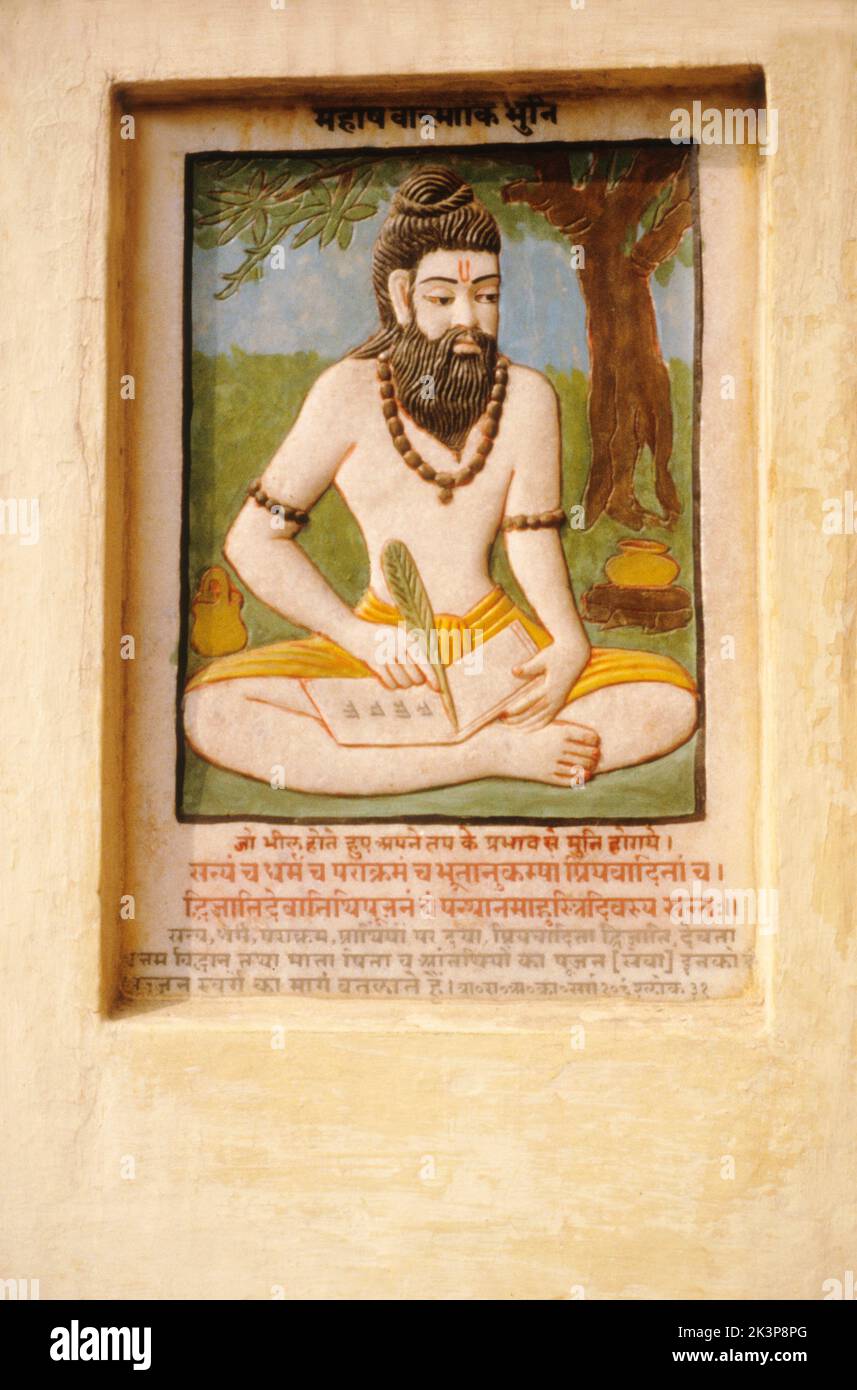 महर्षि वाल्मीकि मुनि
जो भील होते हुए अपने तप के प्रभाव से मुनि होगये।
सत्यं च धर्मं च पराक्रमं च भूतानुकम्पा प्रियवादितां च।
द्विजातिदेवातिथिपूजनं च पन्थानमाहुस्त्रिदिवस्य सन्तः॥
सत्य, धर्म, पराक्रम, प्राणियों पर दया, प्रियवादिता द्विजाति, देवता
विद्वान तथा माता पिता व अतिथियों का पूजन [सेवा] इनको
स्वर्ग का मार्ग बतलाते हैं। वा०रा०अ०का०सर्ग १०९ श्लोक ३१
alamy
Image ID: 2K3P8PG
www.alamy.com